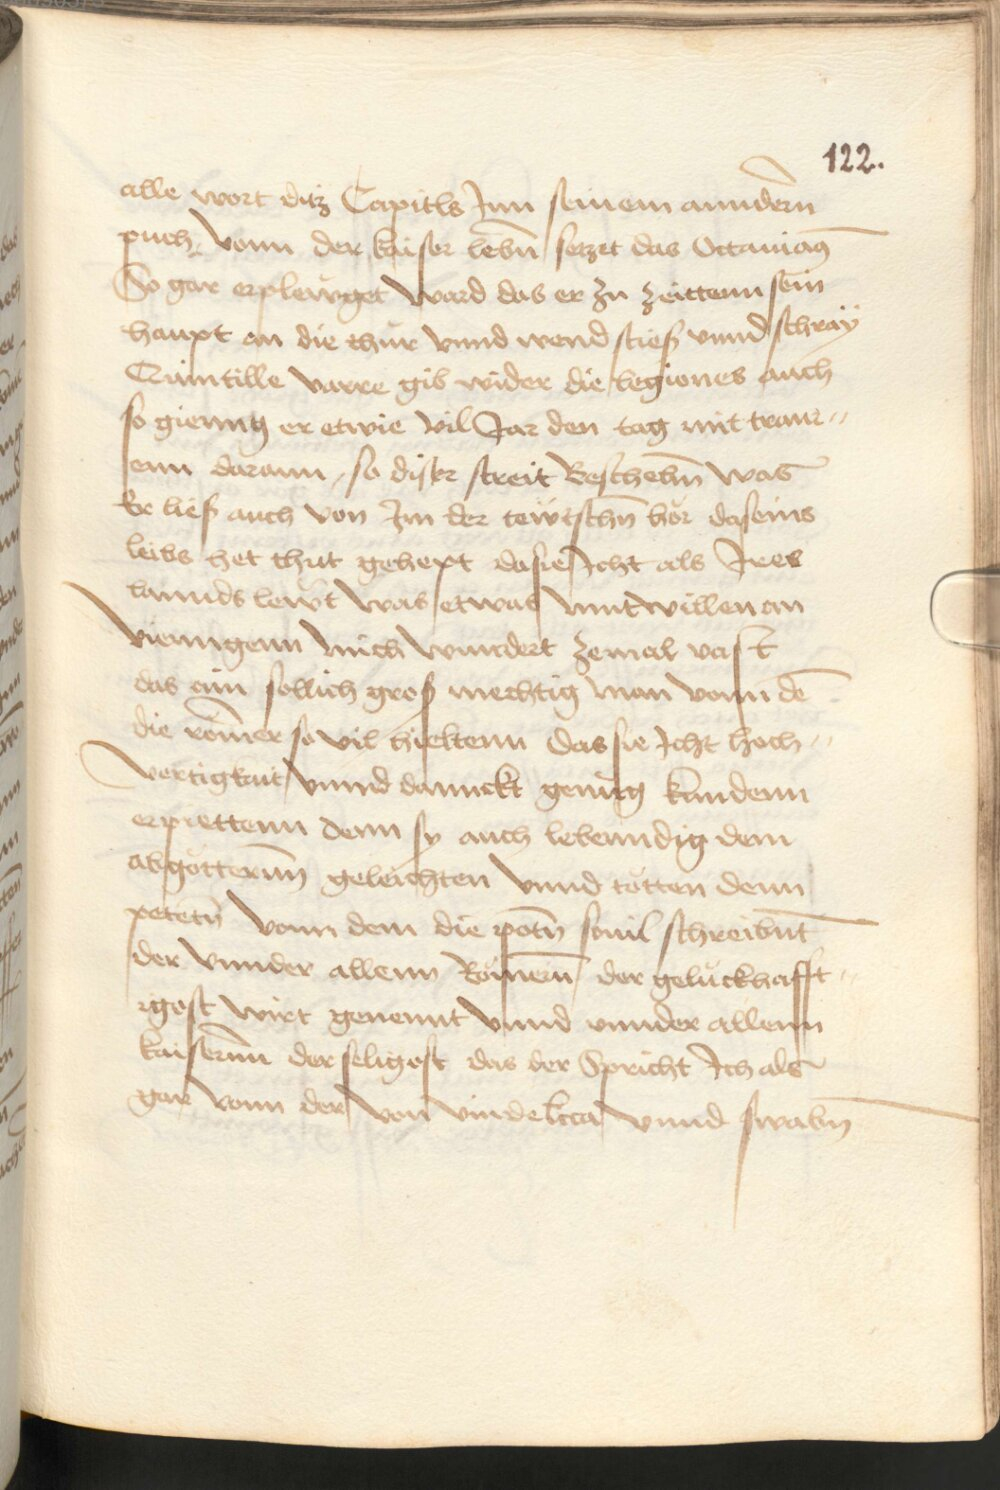 122.
alle wort ditz Capitls Jnn seinem anndern̄
puch, vonn der kaiser lebn̄ setzet das Octauian9
So gar erplewget ward das er zu zeittenn sein
haupt an die thür vnnd wend sties vnnd schray
Quintille varre gib wider die legiones auch
so gienng er etwie vil Jar den tag mit traur„
enn darann, so diser streit beschehn̄ was
Er lies auch von Jm der tewtschn̄ hör da seins
leibs het thut gehept da sie Jcht als Jres
lannds lewt was etwas mutwillen an
viengenn Mich wundert zemal vast
das ain sollich gros mechtig man vonn dē
die römer so vil hieltenn das sie Jcht hoch„
vertigkait vnnd danuckt genug kundenn
erprettenn denn sy auch lebenndig dem
abgötternn̄ geleichten vnnd tötten denn
petetn̄ vonn dem die potn̄ souil schreibnt
der vnnder allenn Römern̄ der geluckhafft„
igost wirt genennt vnnd vnnder allenn
kaisernn̄ der seligost das der Spricht Jch als
gar vonn der von vindelica vnnd swabn̄